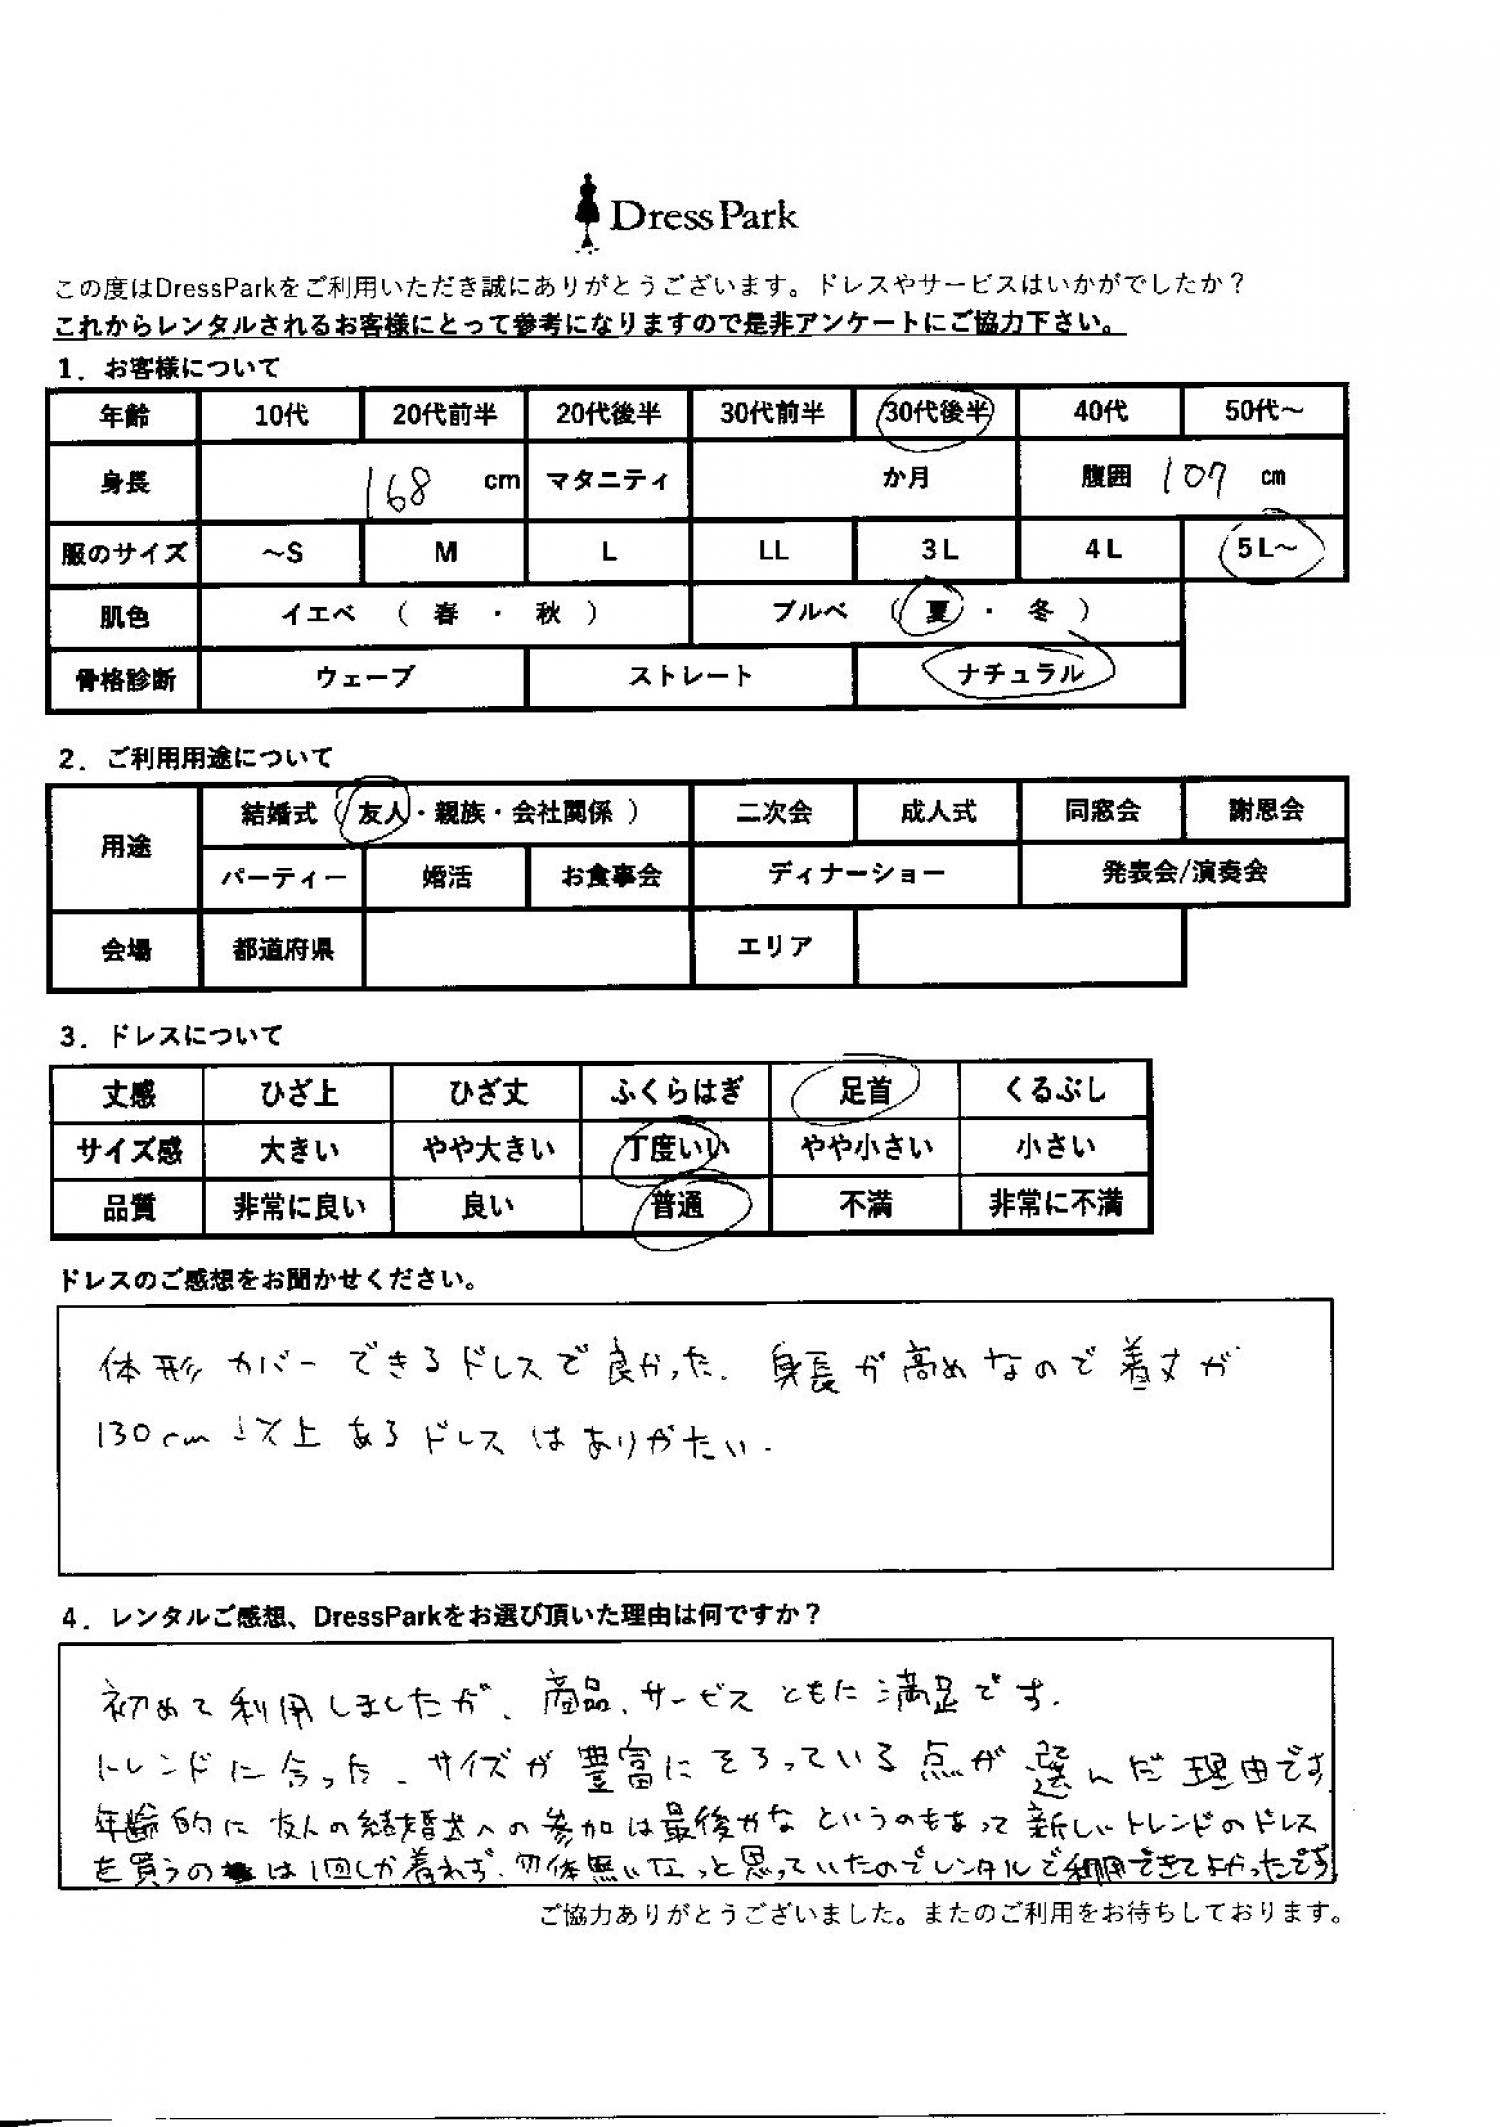 DressPark
この度はDressParkをご利用いただき誠にありがとうございます。ドレスやサービスはいかがでしたか？
これからレンタルされるお客様にとって参考になりますので是非アンケートにご協力下さい。
1．お客様について
年齢 10代 20代前半 20代後半 30代前半 30代後半 40代 50代～
身長 168 cm マタニティ か月 腹囲 107 cm
服のサイズ ～S M L LL 3L 4L 5L～
肌色 イエベ （ 春 ・ 秋 ） ブルベ （ 夏 ・ 冬 ）
骨格診断 ウェーブ ストレート ナチュラル
2．ご利用用途について
用途 結婚式（友人・親族・会社関係 ） 二次会 成人式 同窓会 謝恩会
パーティー 婚活 お食事会 ディナーショー 発表会/演奏会
会場 都道府県 エリア
3．ドレスについて
丈感 ひざ上 ひざ丈 ふくらはぎ 足首 くるぶし
サイズ感 大きい やや大きい 丁度いい やや小さい 小さい
品質 非常に良い 良い 普通 不満 非常に不満
ドレスのご感想をお聞かせください。
体形カバーできるドレスで良かった．身長が高めなので着丈が
130cm以上あるドレスはありがたい．
4．レンタルご感想、DressParkをお選び頂いた理由は何ですか？
初めて利用しましたが、商品、サービスともに満足です．
トレンドに合った、サイズが豊富にそろっている点が選んだ理由です．
年齢的に友人の結婚式への参加は最後かなというのもあって新しいトレンドのドレス
を買うのは1回しか着れず、勿体無いなっと思っていたのでレンタルで利用できてよかったです
ご協力ありがとうございました。またのご利用をお待ちしております。